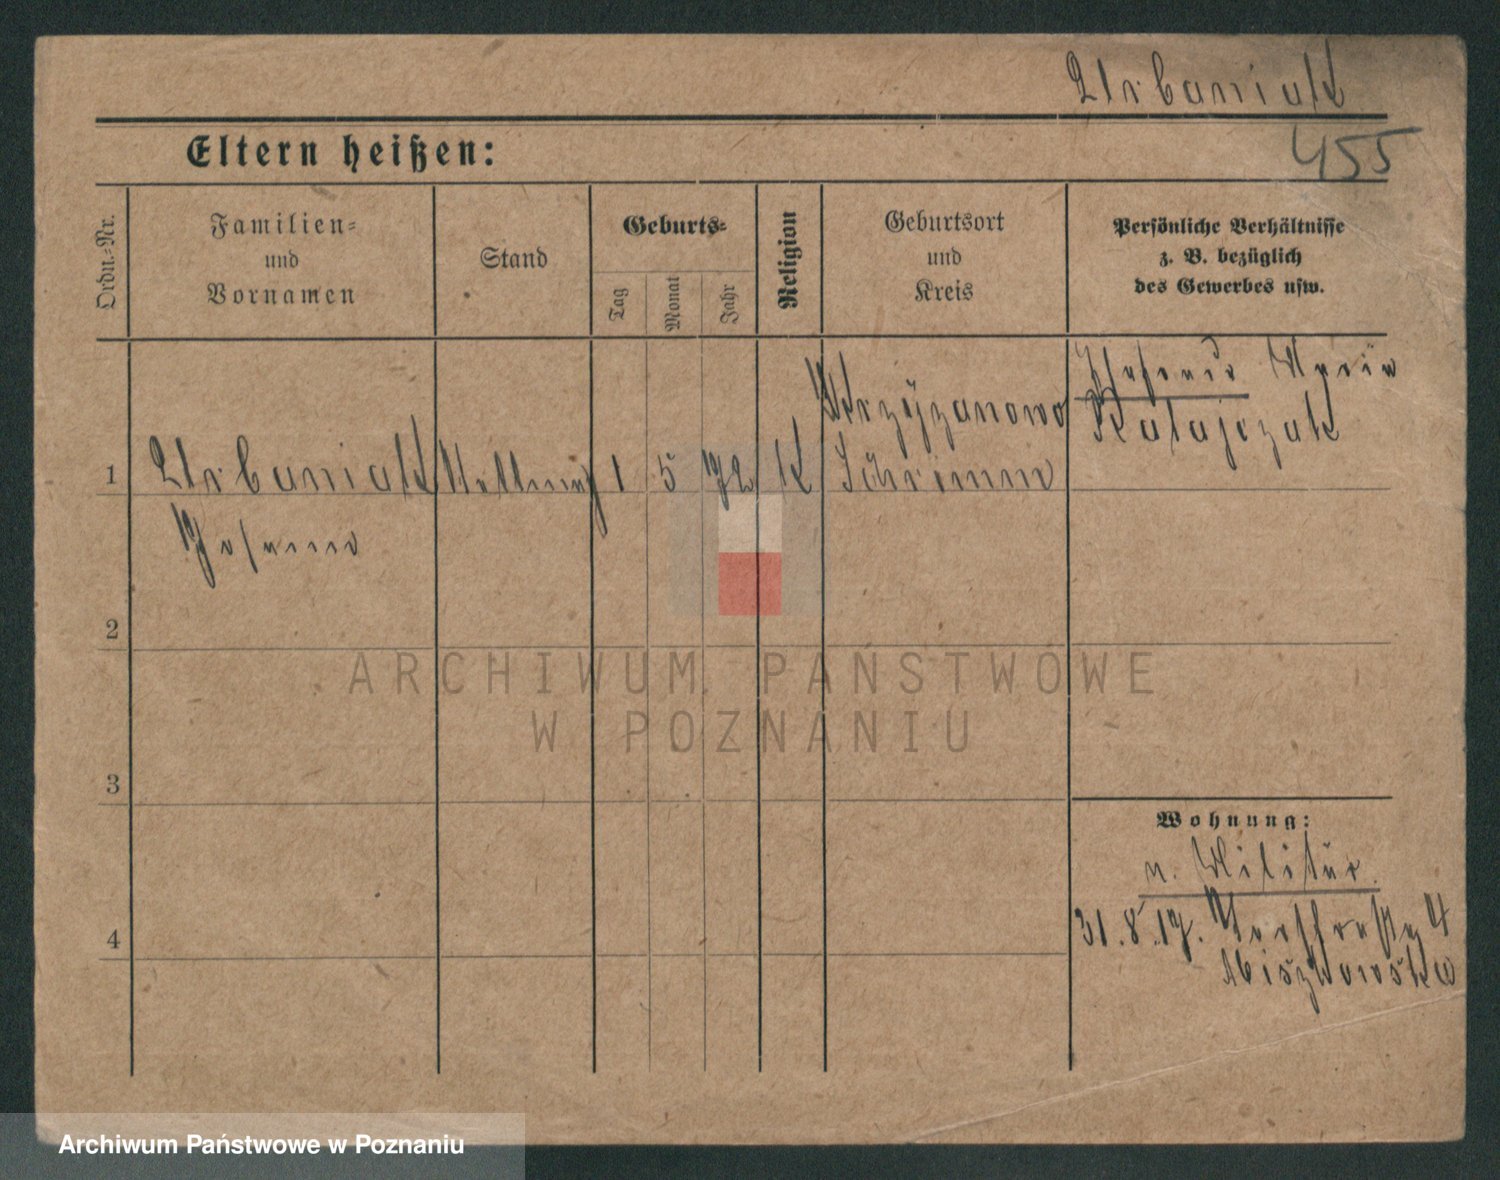 Urbaniak
455
Eltern heißen:
Ordn.-Nr.
Familien-
und
Vornamen
Stand
Geburts-
Tag
Monat
Jahr
Religion
Geburtsort
und
Kreis
Persönliche Verhältnisse
z. B. bezüglich
des Gewerbes usw.
1 Urbaniak 1 5 72 K
Krzyżanowo
Schrimm
Ehefrau Maria
Ratajczak
2
3
4
Wohnung:
v. Militär
31.8.17. 4
ARCHIWUM PAŃSTWOWE
W POZNANIU
Archiwum Państwowe w Poznaniu